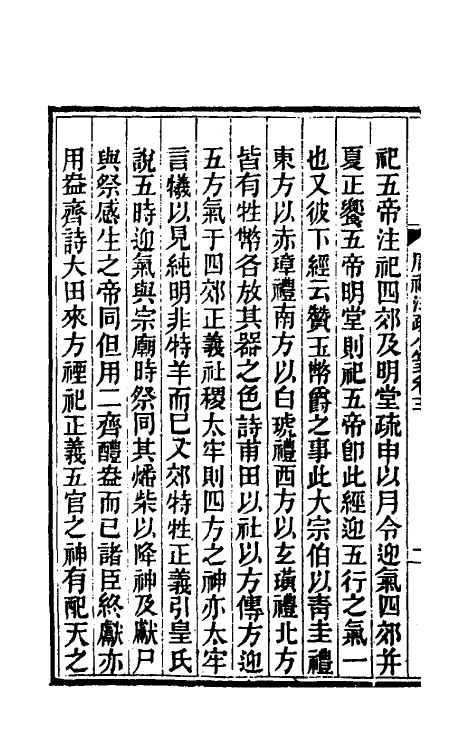 祀五帝注祀四郊及明堂疏申以月令迎氣四郊并
夏正饗五帝明堂則祀五帝卽此經迎五行之氣一
也又彼下經云贊玉幣爵之事此大宗伯以青圭禮
東方以赤璋禮南方以白琥禮西方以玄璜禮北方
皆有牲幣各放其器之色詩甫田以社以方傳方迎
五方氣于四郊正義社稷太牢則四方之神亦太牢
言犧以見純明非特羊而已又郊特牲正義引皇氏
說五時迎氣與宗廟時祭同其燔柴以降神及獻尸
與祭感生之帝同但用二齊醴盎而已諸臣終獻亦
用盎齊詩大田來方禋祀正義五官之神有配天之